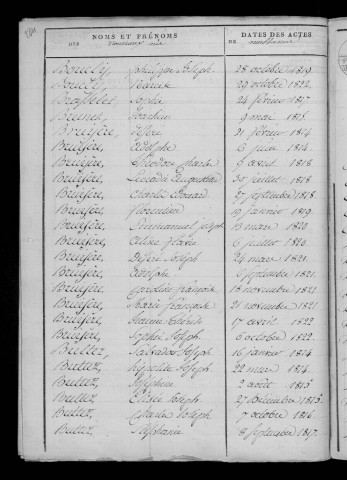 NOMS ET PRÉNOMS
DES
DATES DES ACTES
DE
Joseph 28 octobre 1819.
29 octobre 1822.
Sophie 24 février 1817.
Brunet, Joachim 9 mai 1815.
Bruyère, Désiré 21 février 1814.
Bruyère, Adolphe 6 juin 1814.
Bruyère, Théodore 9 août 1818
Bruyère, Augustin 30 juillet 1818
Bruyère, Charles Edouard 27 septembre 1818.
Bruyère, Florentine 19 janvier 1819.
Bruyère, Emmanuel joseph 13 mars 1820
Bruyère, Celine flavie 6 juillet 1820.
Bruyère, Désiré Joseph 24 mars 1821.
Bruyère, Adolphe 6 septembre 1821.
Bruyère, Caroline françoise 18 novembre 1821.
Bruyère, Marie françoise 21 novembre 1821
Bruyère, 17 avril 1822
Bruyère, Sophie Joseph 6 octobre 1822.
Bultez, Salvador Joseph 16 janvier 1814
Bultez, hipolite Joseph 22 mars 1814.
Bultez, Joséphine 2 août 1815
Bultez, Elisée Joseph 27 décembre 1815
Bultez, Charles Joseph 7 octobre 1816
Bultez, Stéphanie 8 septembre 1817.